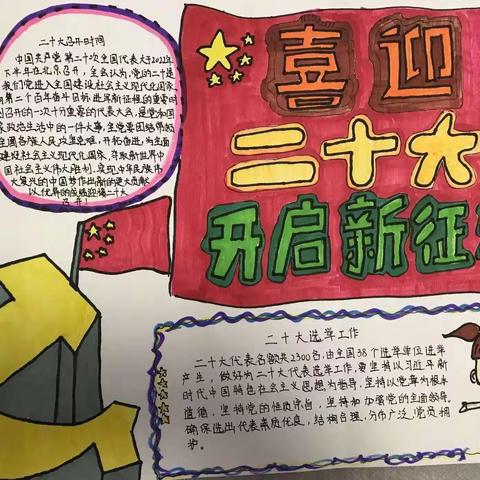 二十大召开时间
中国共产党第二十次全国代表大于2022年
下半年在北京召开，全会认为，党的二十是
我们党进入全国建设社会主义现代化国家
向第二个百年奋斗目标进军新征程的重要时
刻召开的一次十分重要的代表大会，是党和国
家政治生活中的一件大事，全党要团结带领
全国各族人民攻坚克难，开拓奋进，为全面
建设社会主义现代化国家，夺取新时代中
国社会主义伟大胜利，实现中华民族伟
大复兴的中国梦作出新的更大贡献
以优异的成绩迎接二十大
召开！
喜迎
二十大
开启新征
二十大选举工作
二十大代表名额共2300名，由全国38个选举单位选举
产生，做好为二十大代表选举工作，要坚持以习近平新
时代中国特色社会主义思想为指导，坚持以党章为根本
遵循，坚持党的性质宗旨，坚持和加强党的全面领导。
确保选出代表素质优良，结构合理，分布广泛，党员拥
护。